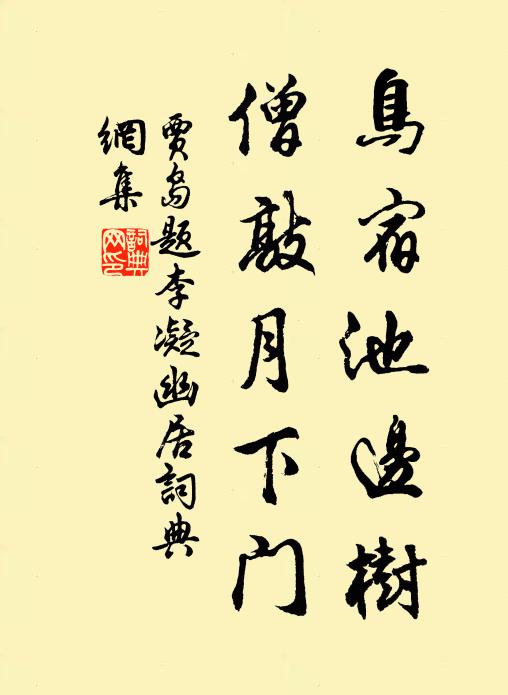 鳥宿池邊樹
僧敲月下门
賈島题李凝幽居詞典
網集
詞典
网印